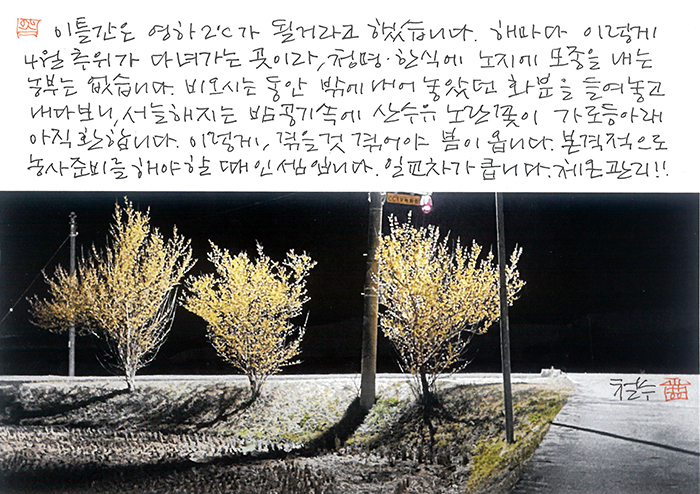 이틀간은 영하 2℃가 될거라고 했습니다. 해마다 이렇게
4월 추위가 다녀가는 곳이라, 청명·한식에 노지에 모종을 내는
농부는 없습니다. 비오시는 동안 밖에 내어 놓았던 화분을 들여놓고
내다보니, 서늘해지는 밤공기속에 산수유 노란꽃이 가로등아래
아직 환합니다. 이렇게, 겪을것 겪어야 봄이 옵니다. 본격적으로
농사준비를 해야할 때인 셈입니다. 일교차가 큽니다. 체온관리!!
철수